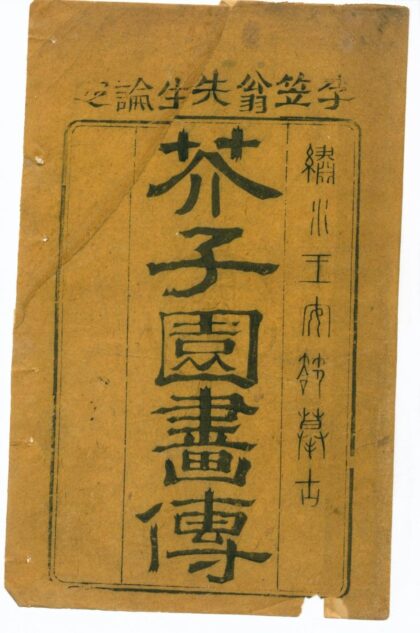 李笠翁先生論定
繡水王安節摹古
芥子園畫傳